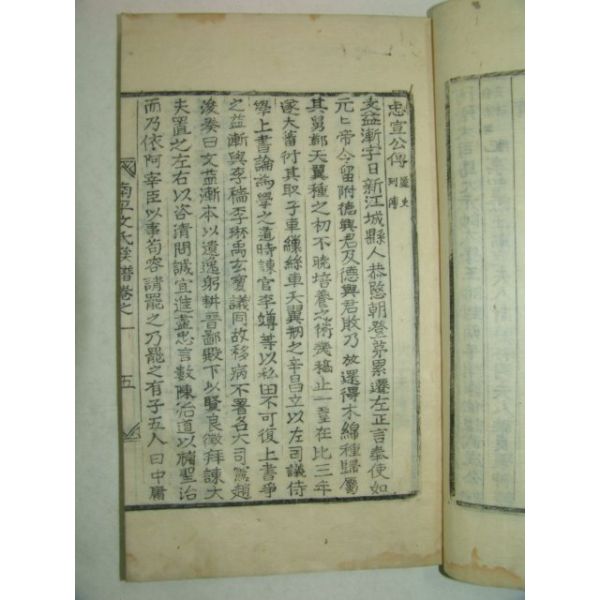 忠宣公傳 麗史列傳
文益漸字日新江城縣人恭愍朝登第累遷左正言奉使如
元々帝令留附德興君及德興君敗乃放還得木綿種歸屬
其舅鄭天翼種之初不曉培養之術幾稿止一莖在比三年
遂大蕃衍其取子車繅絲車天翼刱之辛昌立以左司議侍
學上書論爲學之道時諫官李竴等以私田不可復上書爭
之益漸與李穡李琳禹玄寶議同故移病不署名大司憲趙
浚劾曰文益漸本以遺逸躬耕晉鄙殿下以賢良徵拜諫大
夫置之左右以咨淸問誠宜進盡忠言敷陳治道以補聖治
而乃依阿宰臣以事苟容請罷之乃罷之有子五人曰中庸
南平文氏族譜卷之一 五